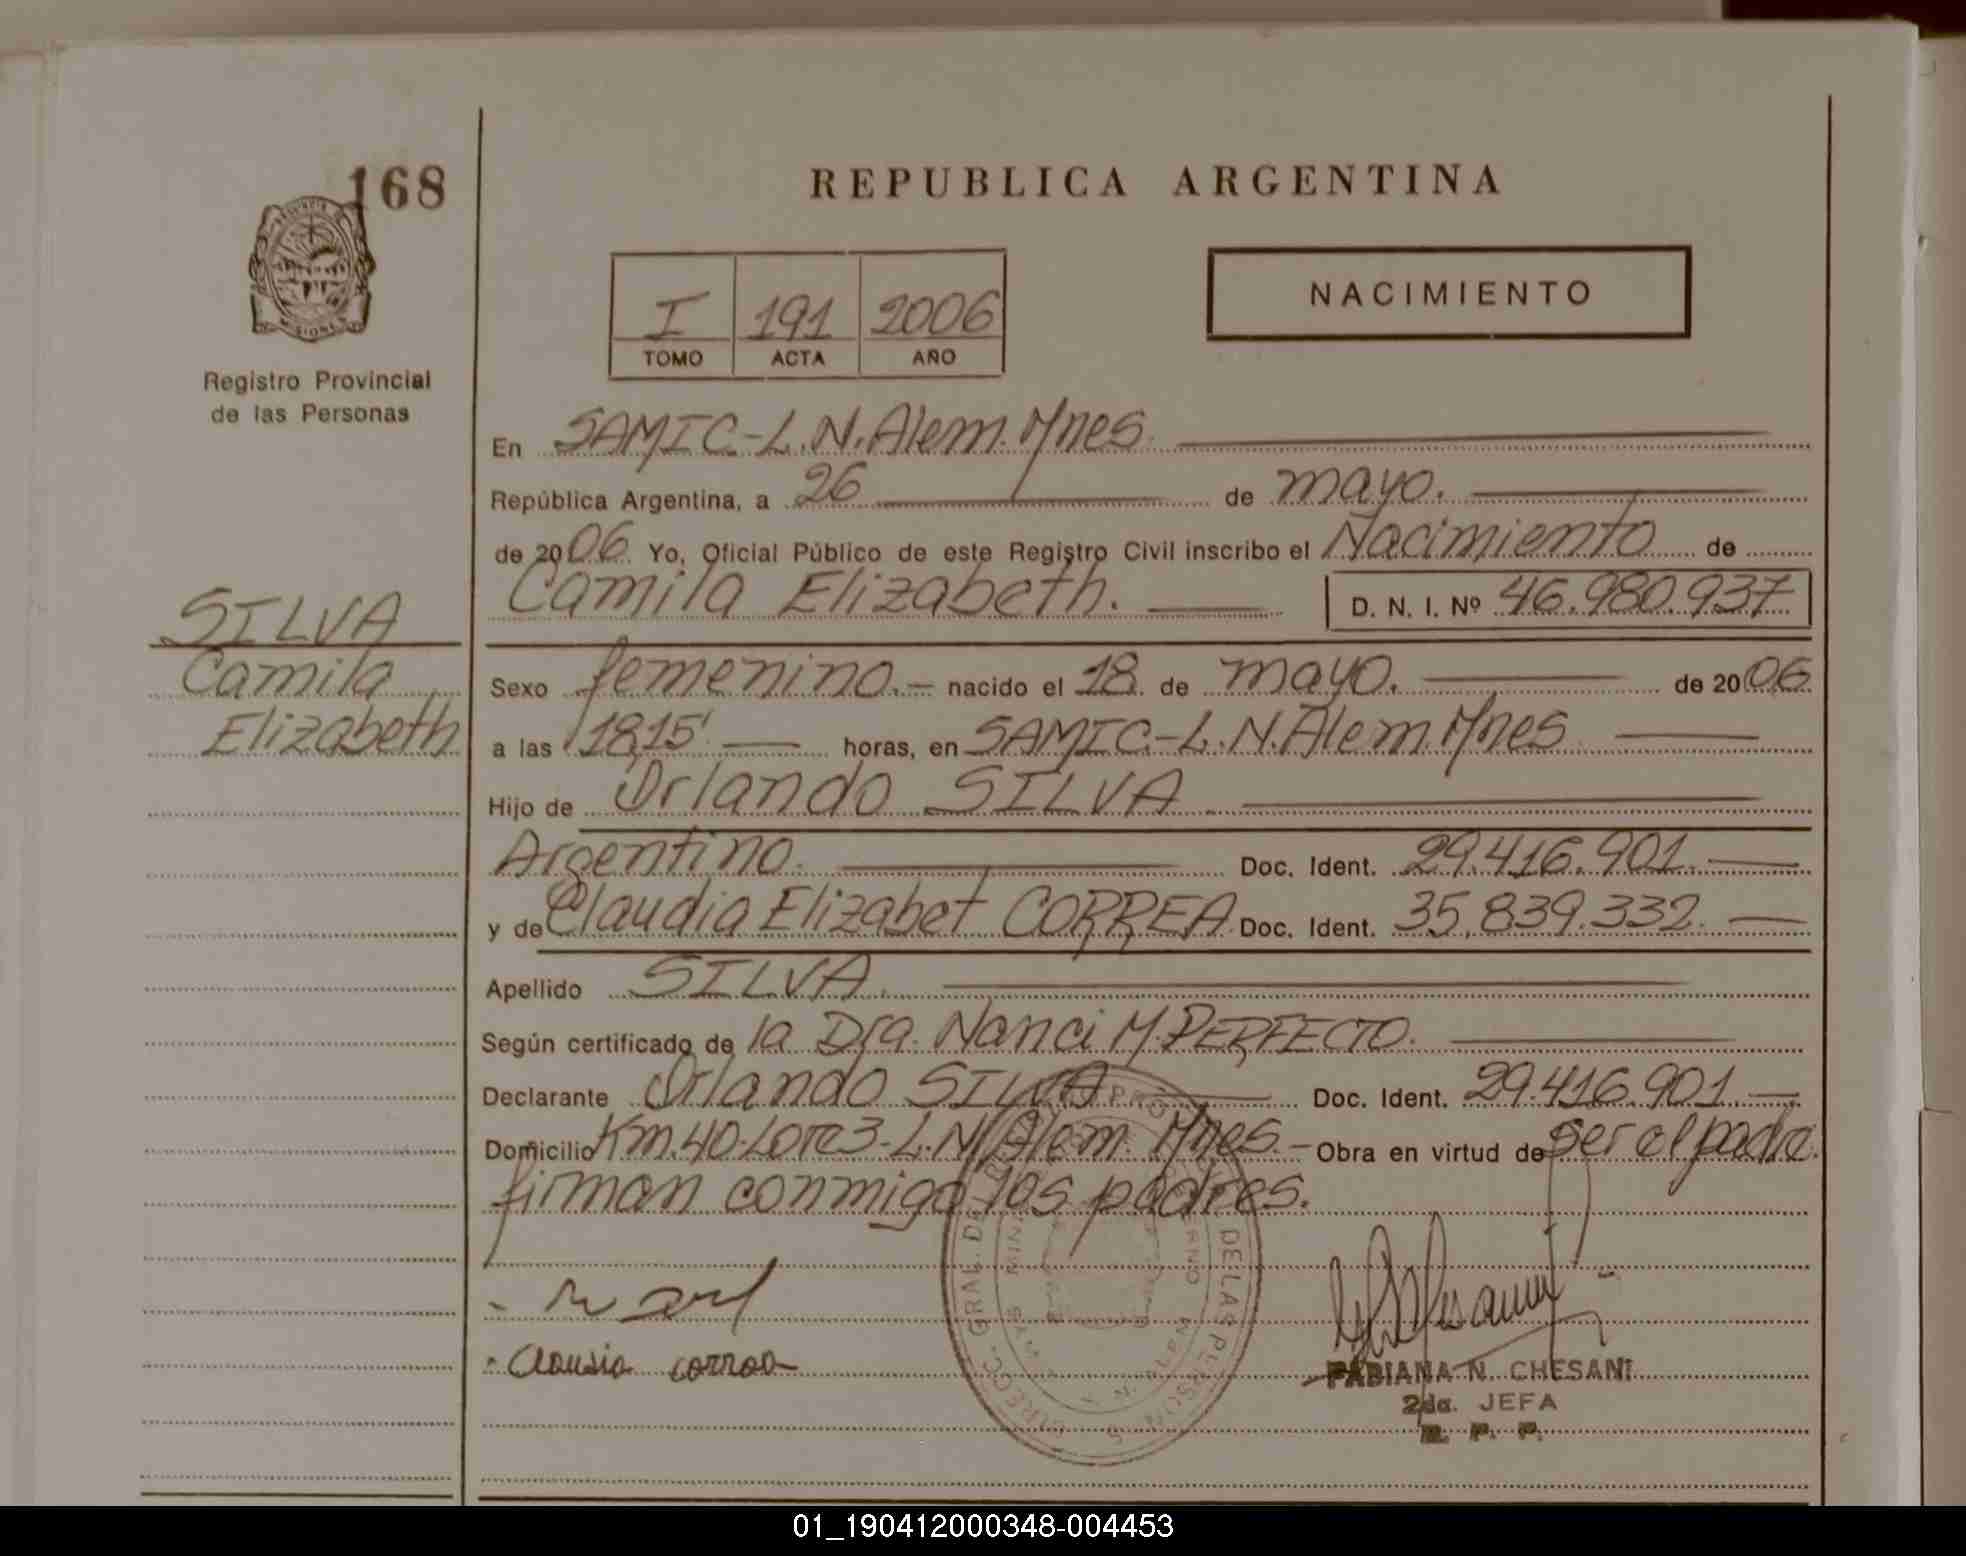 168
REPUBLICA ARGENTINA
PROVINCIA DE MISIONES
Registro Provincial
de las Personas
I 191 2006
TOMO ACTA AÑO
NACIMIENTO
En SAMIC-L.N.Alem.Mnes.
República Argentina, a 26 de mayo.
de 2006. Yo, Oficial Público de este Registro Civil inscribo el Nacimiento de
Camila Elizabeth. D. N. I. Nº 46.980.937
SILVA
Camila
Elizabeth
Sexo femenino.- nacido el 18 de mayo. de 2006
a las 18,15' horas, en SAMIC.-L.N.Alem.Mnes
Hijo de Orlando SILVA
Argentino. Doc. Ident. 29.416.901.
y de Claudia Elizabet CORREA Doc. Ident. 35.839.332.
Apellido SILVA.
Según certificado de la Dra. Nanci M.PERFECTO.
Declarante Orlando SILVA Doc. Ident. 29.416.901.
Domicilio Km.40-Lote3-L.N.Alem. Mnes.- Obra en virtud de ser el padre.
firman conmigo los padres.
Clausia correa
DIRECC. GRAL. DEL REG. PROV. DE LAS PERSONAS
FABIANA N. CHESANI
2da. JEFA
R. P. P.
01_190412000348-004453